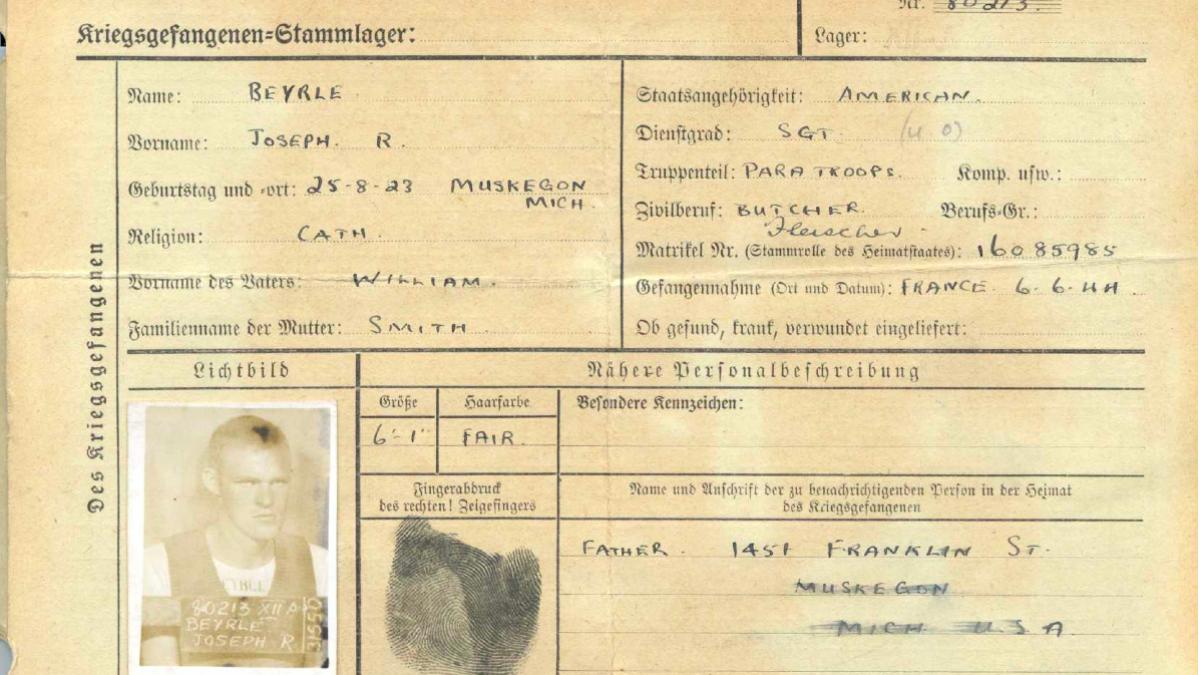 Nr. 80213.
Kriegsgefangenen-Stammlager:
Lager:
Des Kriegsgefangenen
Name: BEYRLE
Vorname: JOSEPH. R.
Geburtstag und -ort: 25-8-23 MUSKEGON
MICH.
Religion: CATH.
Vorname des Vaters: WILLIAM.
Familienname der Mutter: SMITH
Staatsangehörigkeit: AMERICAN.
Dienstgrad: SGT. (U O)
Truppenteil: PARATROOPS. Komp. usw.:
Zivilberuf: BUTCHER. Berufs-Gr.:
Fleischer
Matrikel Nr. (Stammrolle des Heimatstaates): 16085985
Gefangennahme (Ort und Datum): FRANCE 6-6-44.
Ob gesund, krank, verwundet eingeliefert:
Lichtbild
80213 XII A
BEYRLE
JOSEPH R.
Nähere Personalbeschreibung
Größe Haarfarbe Besondere Kennzeichen:
6'-1" FAIR.
Fingerabdruck
des rechten! Zeigefingers
Name und Anschrift der zu benachrichtigenden Person in der Heimat
des Kriegsgefangenen
FATHER. 1451 FRANKLIN ST.
MUSKEGON
MICH U.S.A.